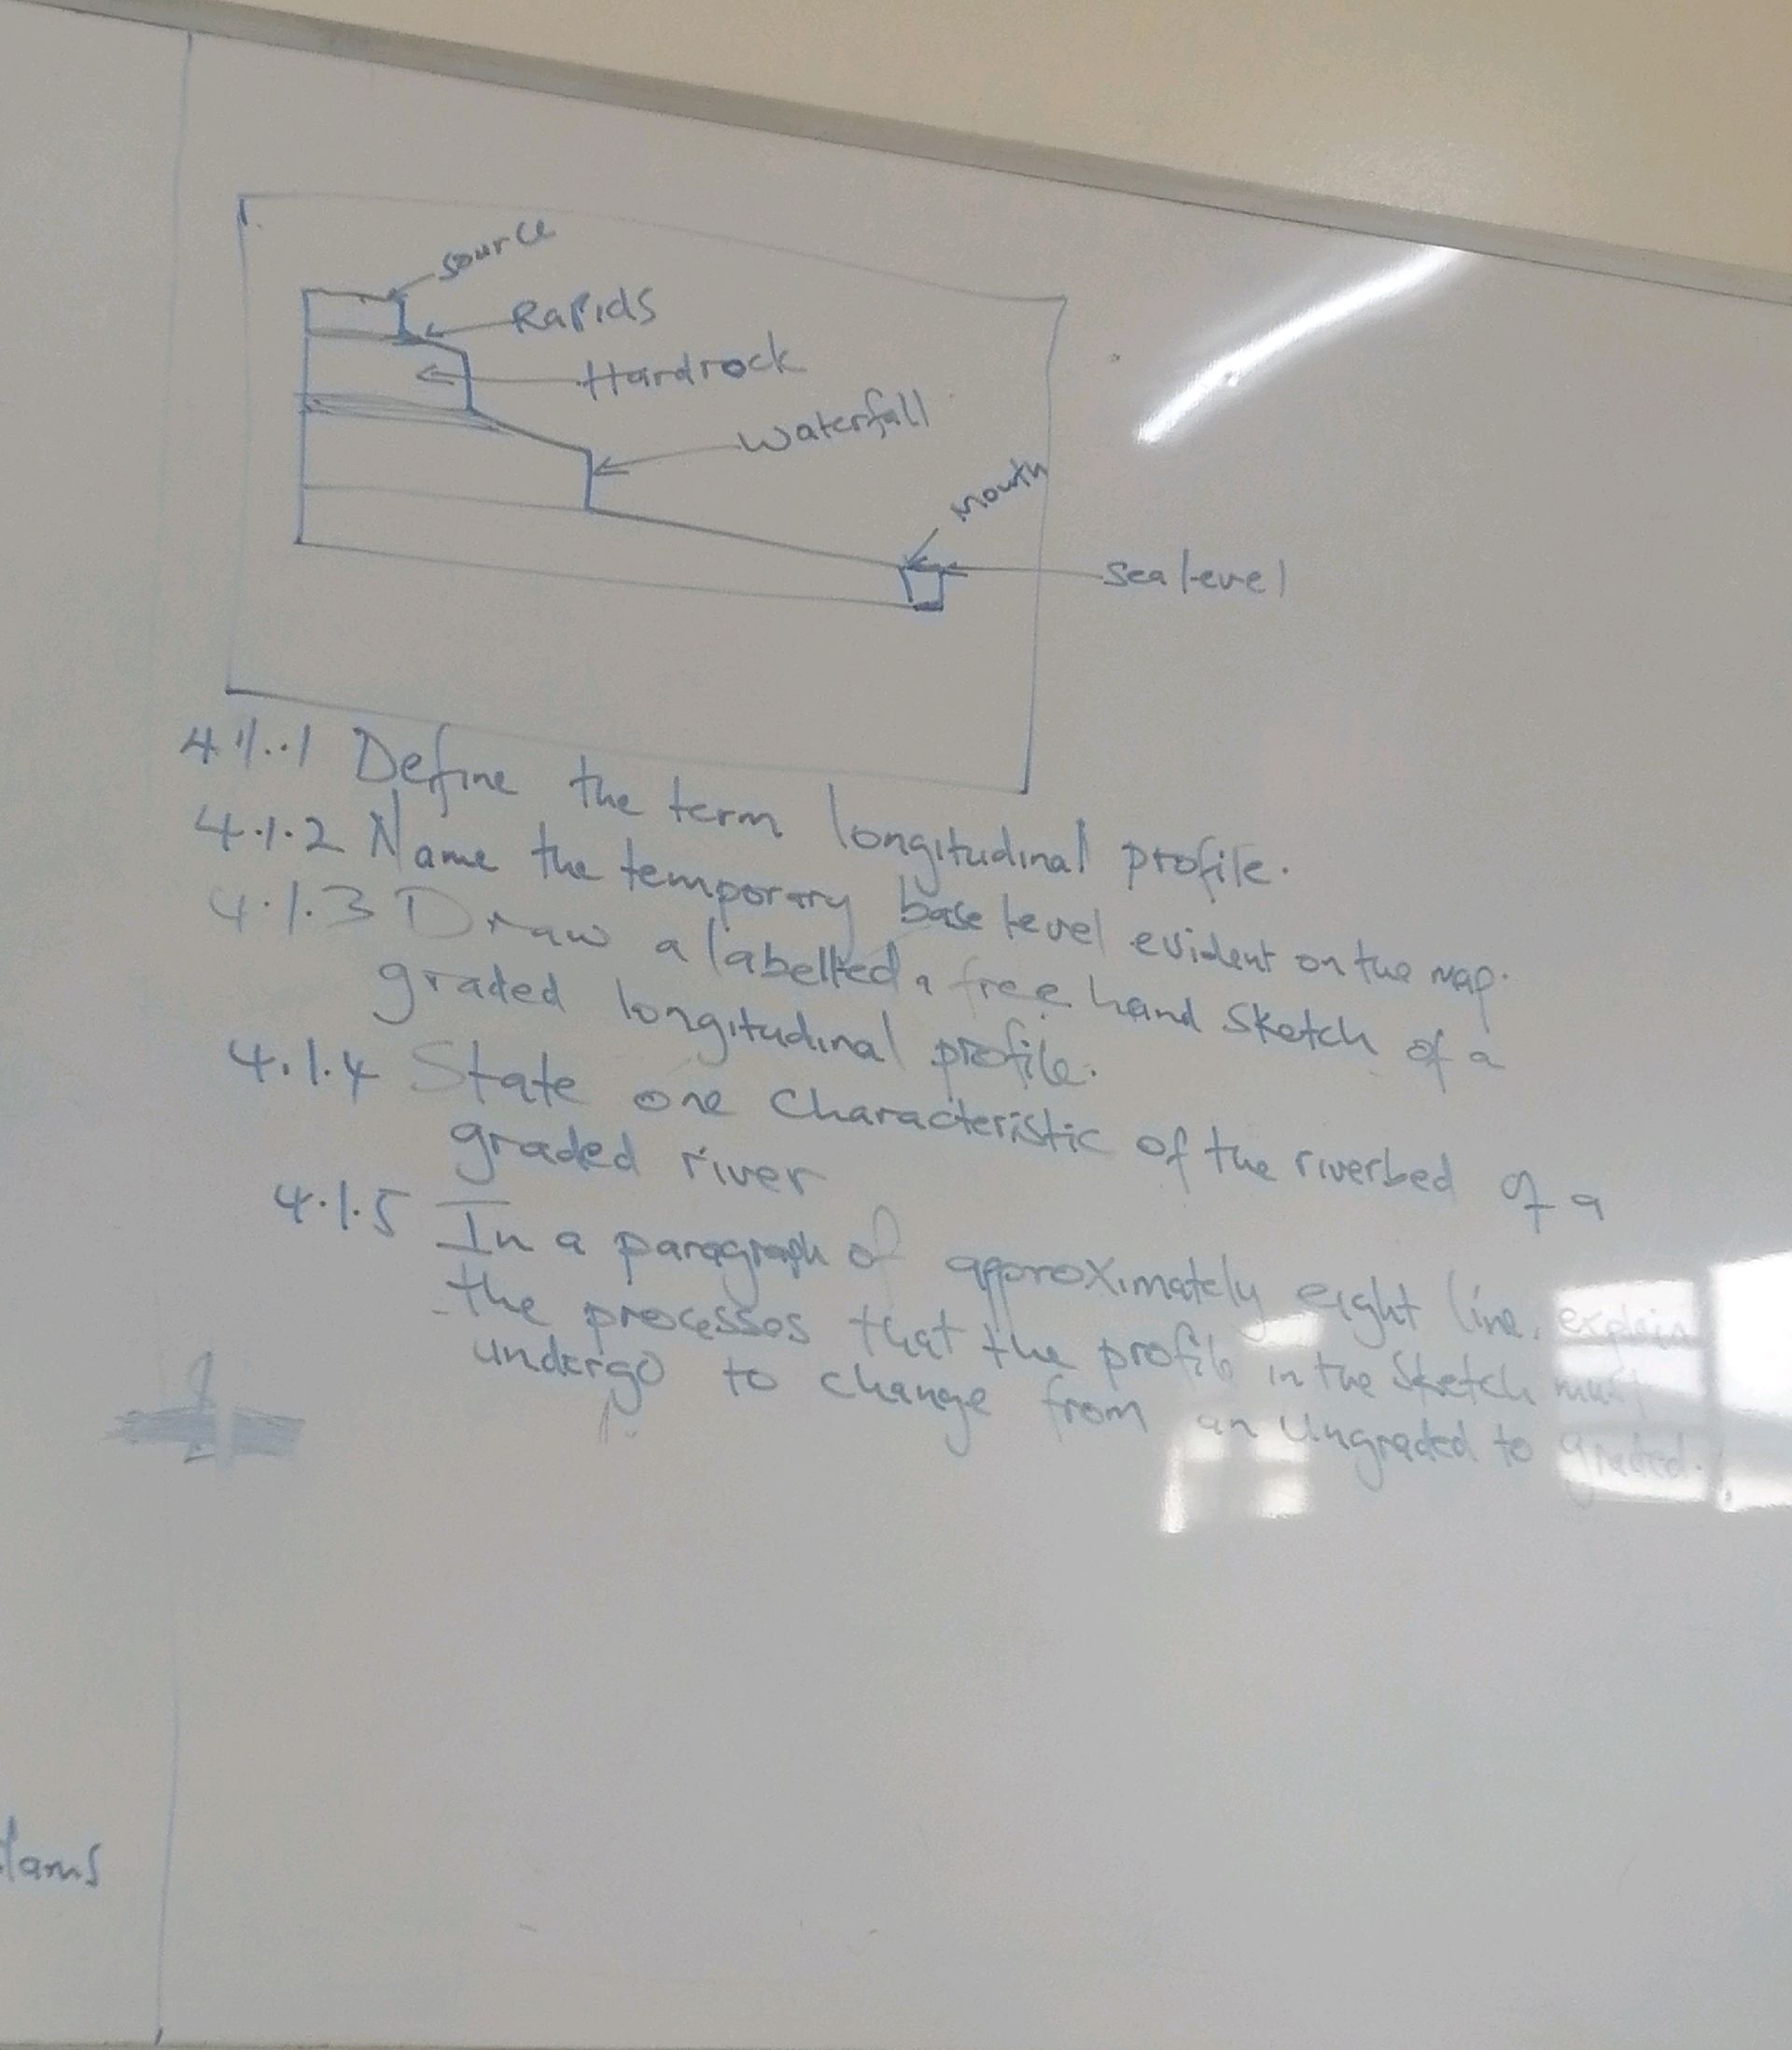 source
Rapids
Hardrock
waterfall
Mouth
Sea level
4.1..1 Define the term longitudinal profile.
4.1.2 Name the temporary base level evident on the map.
4.1.3 Draw a labelled, free hand sketch of a
graded longitudinal profile.
4.1.4 State one characteristic of the riverbed of a
graded river
4.1.5 In a paragraph of approximately eight line, explain
the processes that the profile in the sketch must
undergo to change from an Ungraded to graded.